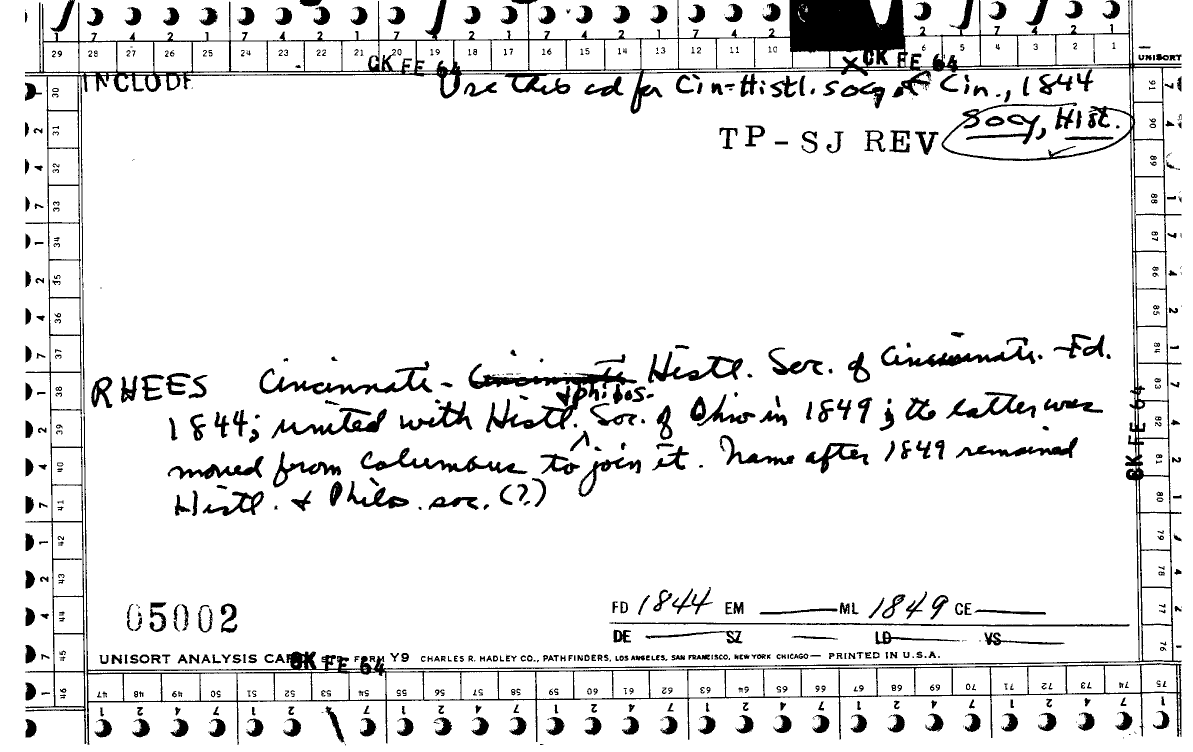 7 4 2 1 7 4 2 1 7 4 2 1 7 4 2 1 7 4 2 7 4 2 1
29 28 27 26 25 24 23 22 21 20 19 18 17 16 15 14 13 12 11 10 6 5 4 3 2 1 UNISORT
CK FE 64 CK FE 64
INCLUDE Use this cd for Cin-Histl. socy of Cin., 1844
TP-SJ REV Socy, Hist.
RHEES Cincinnati - Cincinnati Histl. Soc. of Cincinnati. - Fd.
& philos.
1844; united with Histl. ^ Soc. of Ohio in 1849; the latter was
moved from Columbus to join it. Name after 1849 remained
Histl. & Philos. soc. (?)
CK FE 64
05002
FD 1844 EM ML 1849 CE
DE SZ LD VS
UNISORT ANALYSIS CARD FORM Y9 CHARLES R. HADLEY CO., PATHFINDERS, LOS ANGELES, SAN FRANCISCO, NEW YORK CHICAGO — PRINTED IN U.S.A.
CK FE 64
30 31 32 33 34 35 36 37 38 39 40 41 42 43 44 45 46
91 90 89 88 87 86 85 84 83 82 81 80 79 78 77 76 75
47 48 49 50 51 52 53 54 55 56 57 58 59 60 61 62 63 64 65 66 67 68 69 70 71 72 73 74